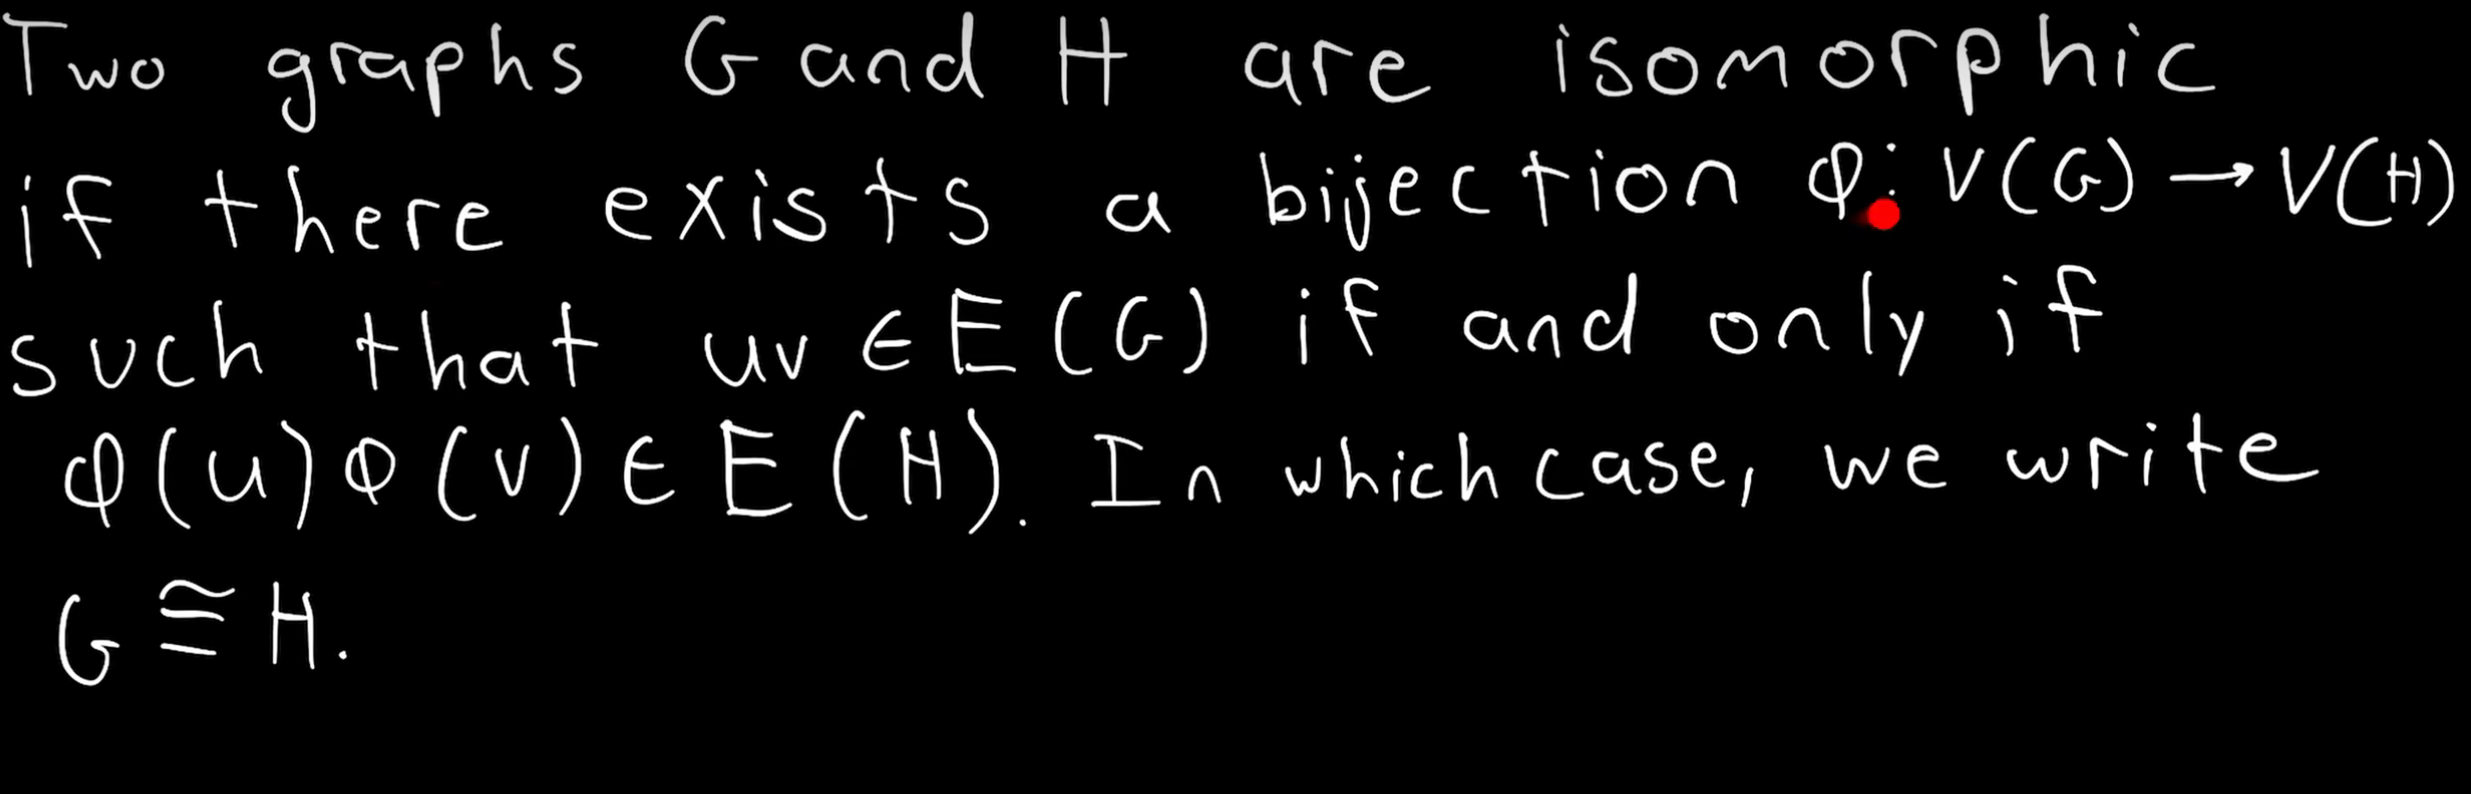 Two graphs G and H are isomorphic
if there exists a bijection φ: V(G) → V(H)
such that uv ∈ E(G) if and only if
φ(u)φ(v) ∈ E(H). In which case, we write
G ≅ H.